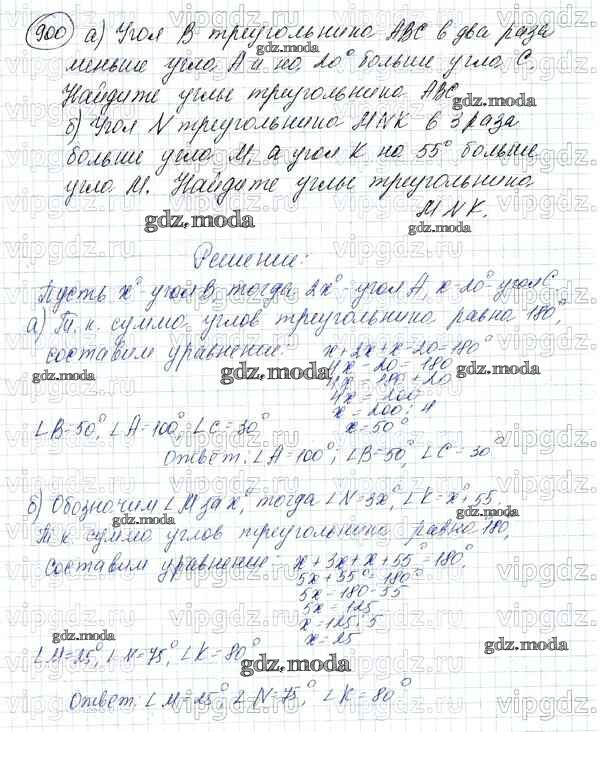 900 а) Угол B треугольника ABC в два раза
меньше угла A и на 20° больше угла C.
Найдите углы треугольника ABC.
б) Угол N треугольника MNK в 3 раза
больше угла M, а угол K на 55° больше
угла M. Найдите углы треугольника
MNK.
Решение:
Пусть x° угол B, тогда 2x° - угол A, x-20° угол C.
а) Т.к. сумма углов треугольника равна 180°,
составим уравнение: x+2x+x-20=180°
4x-20=180
4x=180+20
4x=200
x=200:4
x=50°
∠B=50°, ∠A=100°, ∠C=30°
Ответ: ∠A=100°; ∠B=50°, ∠C=30°
б) Обозначим ∠M за x°, тогда ∠N=3x°, ∠K=x°+55.
Т.к. сумма углов треугольника равна 180,
составим уравнение: x+3x+x+55°=180°,
5x+55°=180°
5x=180-55
5x=125
x=125:5
x=25
∠M=25°, ∠N=75°, ∠K=80°
Ответ. ∠M=25°, ∠N=75°, ∠K=80°
gdz.moda
vipgdz.ru